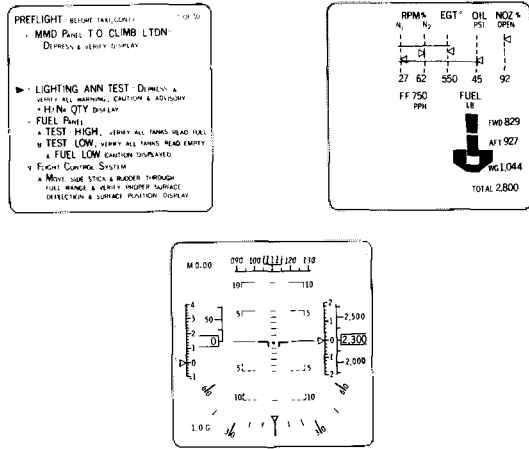 PREFLIGHT BEFORE TAXI, CONT. 1 OF 30
MMD PANEL TO CLIMB LTDN
DEPRESS & VERIFY DISPLAY
LIGHTING ANN TEST DEPRESS &
VERIFY ALL WARNING, CAUTION & ADVISORY
QTY DISPLAY
FUEL PANEL
A TEST HIGH, VERIFY ALL TANKS READ FULL
B TEST LOW, VERIFY ALL TANKS READ EMPTY
& FUEL LOW CAUTION DISPLAYED
9 FLIGHT CONTROL SYSTEM
A MOVE SIDE STICK & RUDDER THROUGH
FULL RANGE & VERIFY PROPER SURFACE
DEFLECTION & SURFACE POSITION DISPLAY
RPM% EGT° OIL NOZ%
N1 N2 PSI OPEN
27 62 550 45 92
FF 750 FUEL
PPH LB
FWD 829
AFT 927
WG 1,044
TOTAL 2,800
M 0.00 090 100 111 120 130
10 10
4 2
3 50 5 5 1 2,500
2
1 0 0 2,300
0 1 2,000
1 5 5 2
60 10 10 60
1.0 G 30 30